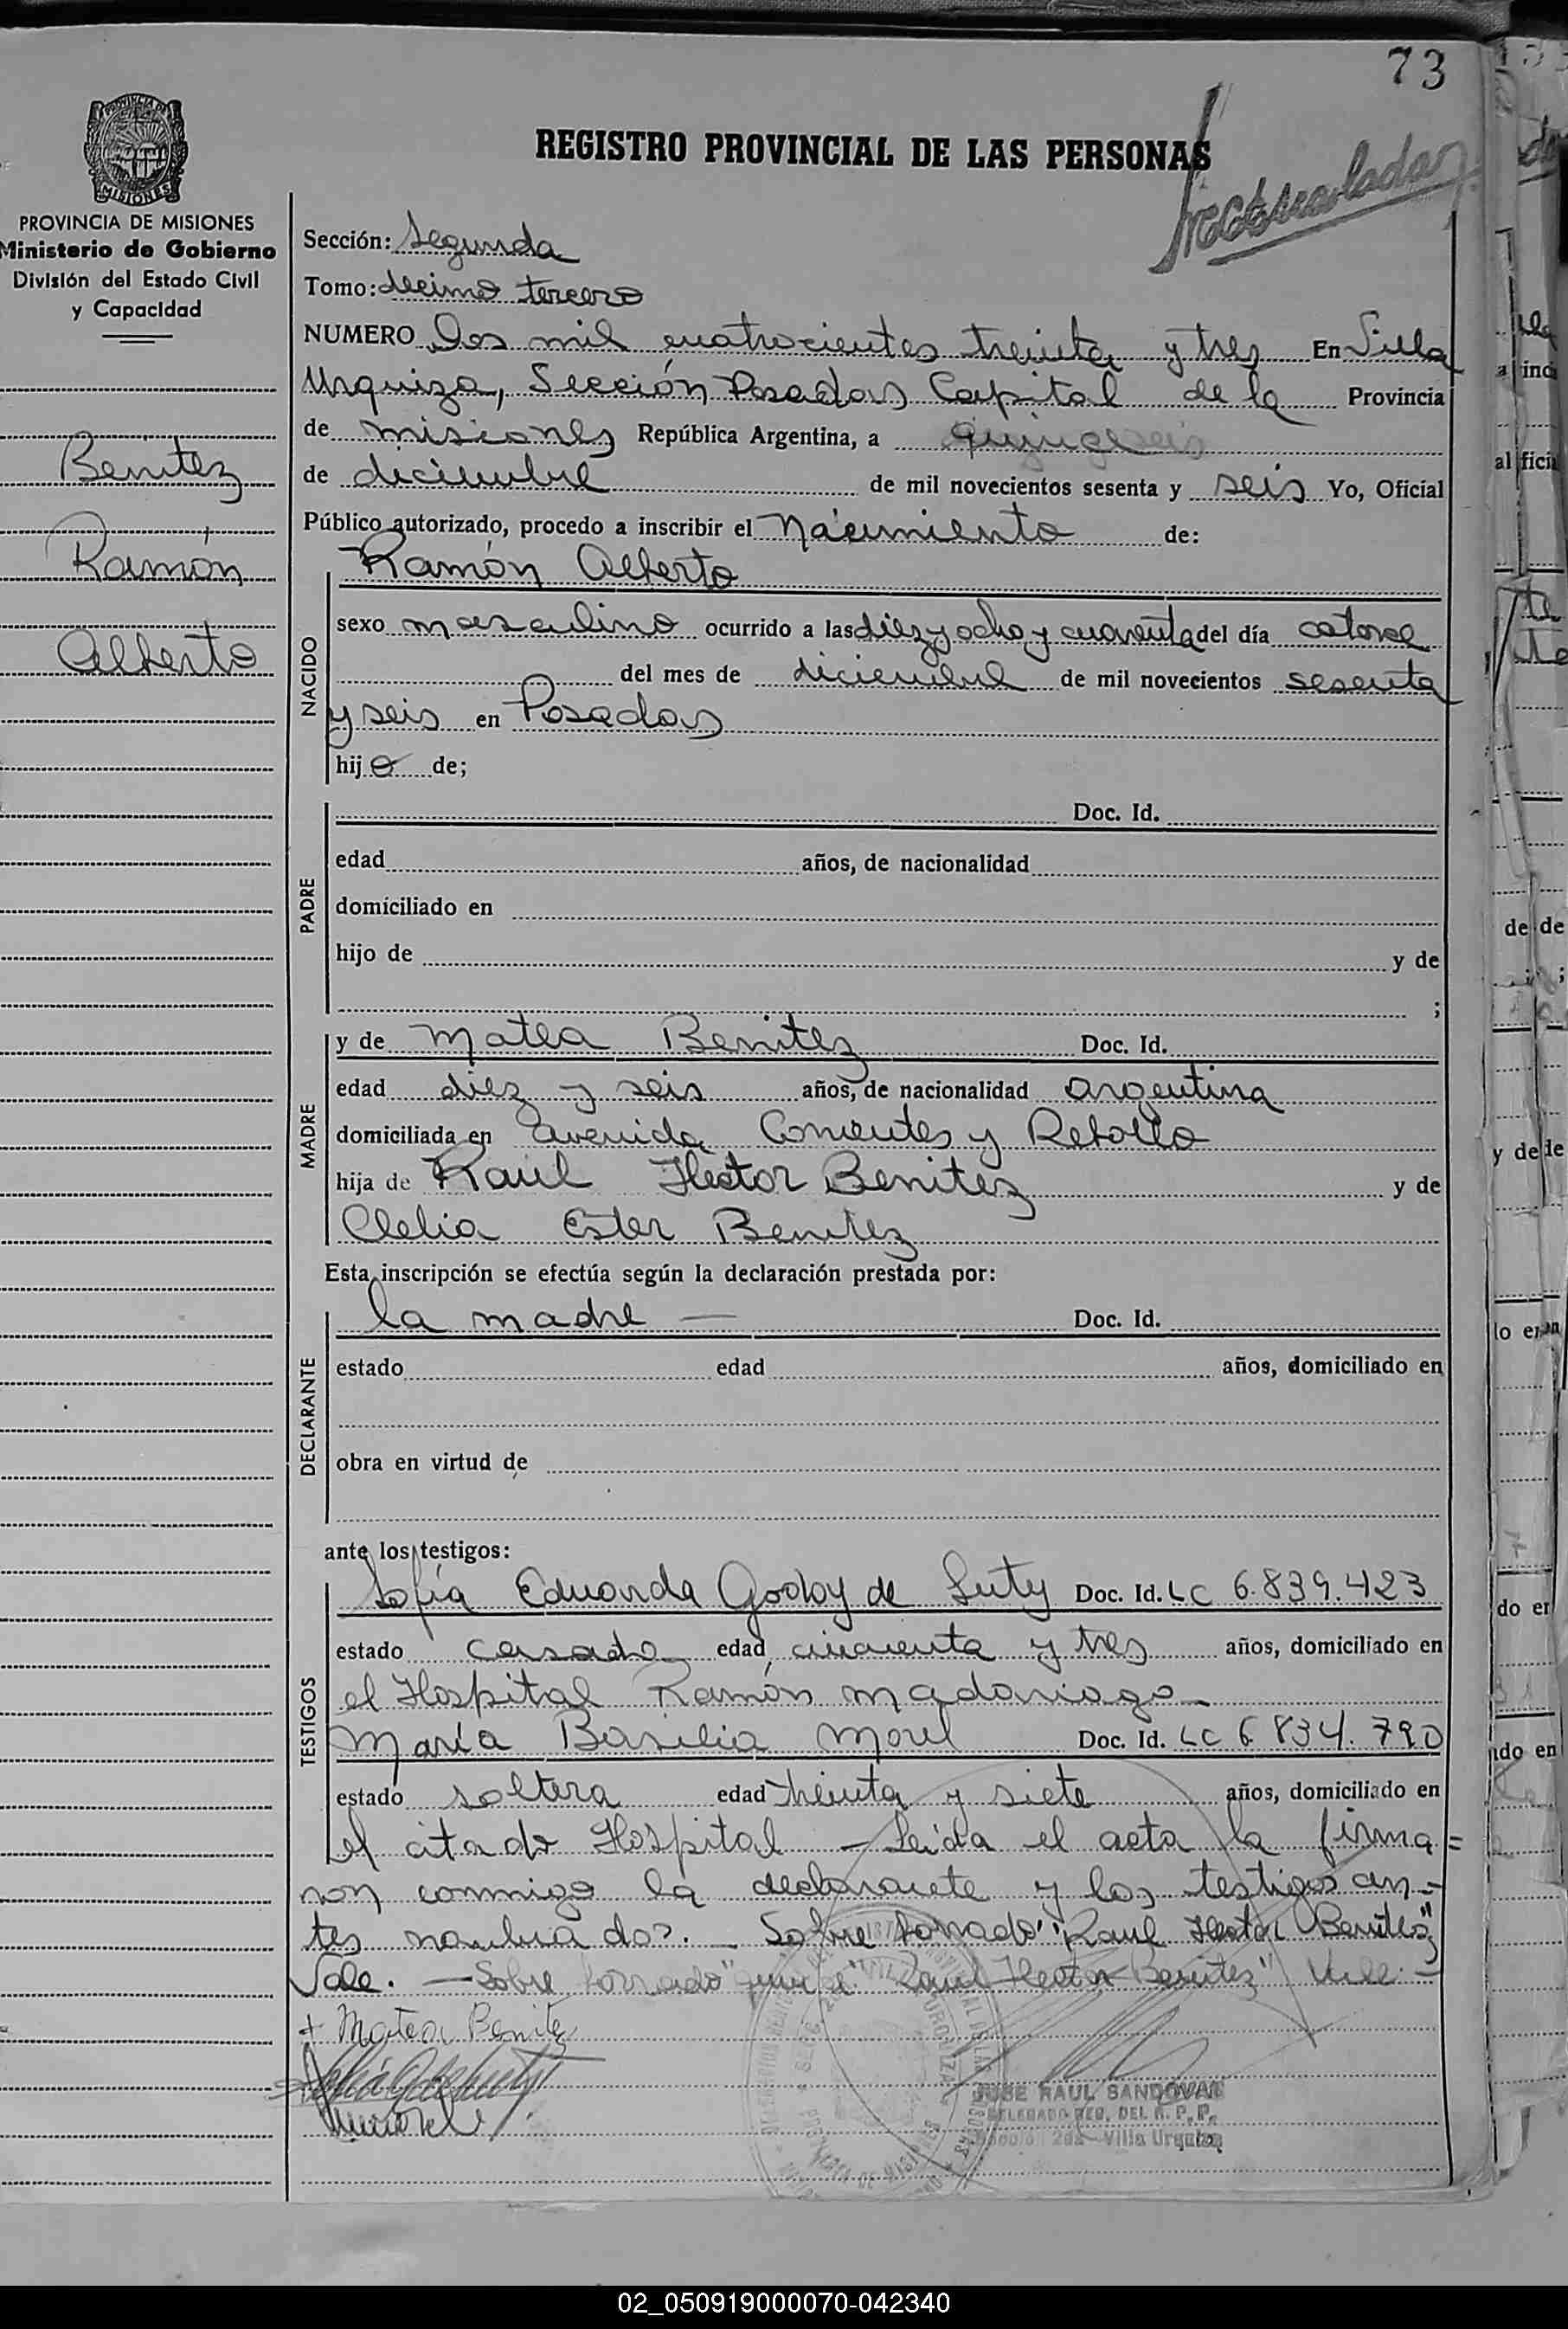 73
REGISTRO PROVINCIAL DE LAS PERSONAS
PROVINCIA DE MISIONES
MISIONES
PROVINCIA DE MISIONES
Ministerio de Gobierno
División del Estado Civil
y Capacidad
Benitez
Ramón
Alberto
Sección: Segunda
Tomo: decimo tercero
NUMERO Dos mil cuatrocientos treinta y tres En Villa
Urquiza, Sección Posadas Capital de la Provincia
de misiones República Argentina, a
de diciembre de mil novecientos sesenta y seis Yo, Oficial
Público autorizado, procedo a inscribir el Nacimiento de:
Ramón Alberto
NACIDO
sexo masculino ocurrido a las diez y ocho y cuarenta del día catorce
del mes de diciembre de mil novecientos sesenta
y seis en Posadas
hijo de;
PADRE
Doc. Id.
edad años, de nacionalidad
domiciliado en
hijo de y de
;
MADRE
y de Matea Benitez Doc. Id.
edad diez y seis años, de nacionalidad argentina
domiciliada en avenida Corrientes y Rebollo
hija de Raúl Hector Benitez y de
Clelia Ester Benitez
Esta inscripción se efectúa según la declaración prestada por:
DECLARANTE
la madre — Doc. Id.
estado edad años, domiciliado en
obra en virtud de
ante los testigos:
TESTIGOS
Sofía Eduarda Godoy de Luty Doc. Id. LC 6.839.423
estado casada edad cincuenta y tres años, domiciliado en
el Hospital Ramón madariaga
María Basilia Morel Doc. Id. LC 6 834.790
estado soltera edad treinta y siete años, domiciliado en
el citado Hospital — Leída el acta la firma=
non conmigo la declarante y los testigos an-
tes nombrados. — Sobre borrado "Raul Hector Benitez"
Vale. — Sobre borrado Raul Hector Benitez" Vale. —
+ Matea Benitez
JOSE RAUL SANDOVAL
DELEGADO REG. DEL R. P. P.
Sección 2da - Villa Urquiza
02_050919000070-042340